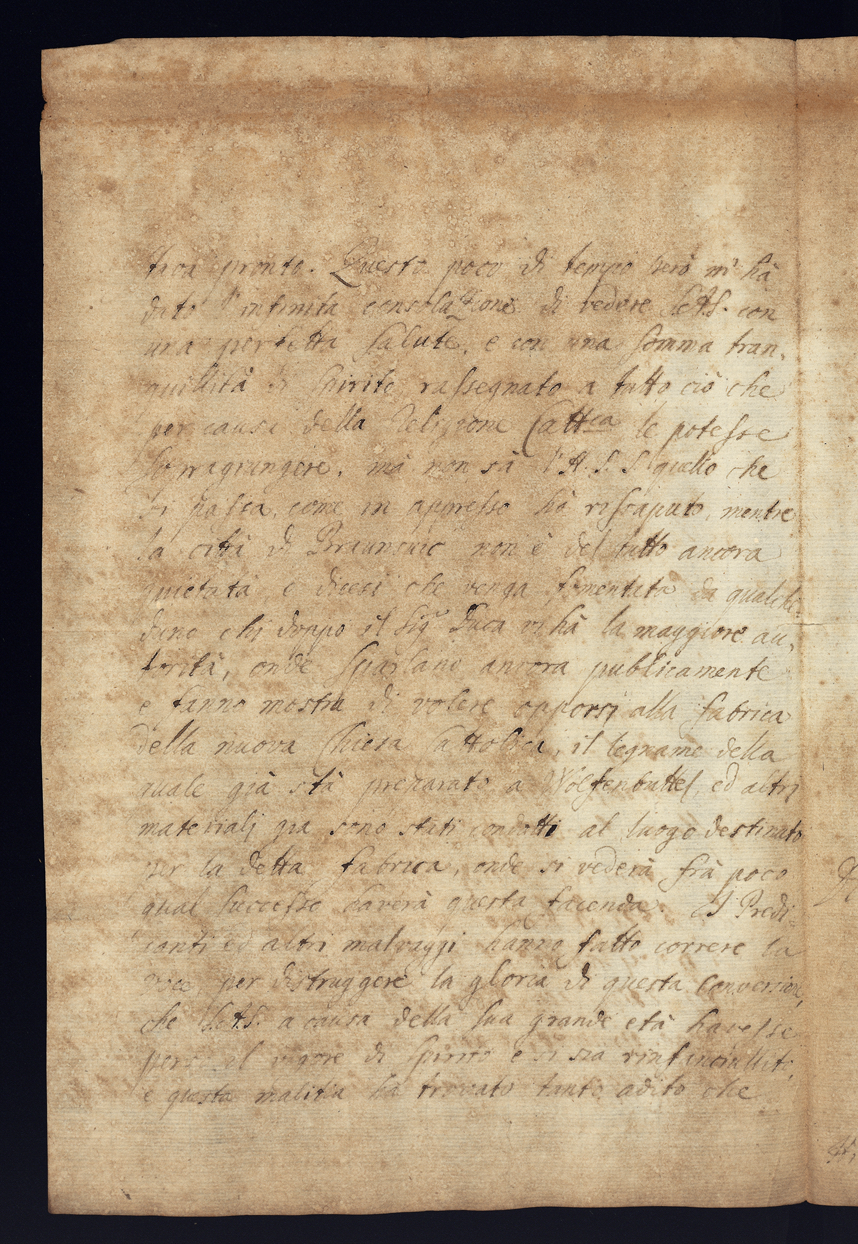 trov pronto. Questo poco di tempo però m'hà
dato l'infinita consolazione di vedere S.A.S. con
una perfetta salute, e con una somma tran,
quillità di spirito rassegnato a tutto ciò che
per causa della Religione Catt.ca le potesse
sopragiungere, mà non sà l'A.S.S. quello che
si passa, come in appresso hà rissaputo, mentre
la città di Braunsuic non è del tutto ancora
quietata, e dicesi che venga fomentata da qualche,
duno chi doppo il Sig.r Duca vi hà la maggiore au,
torità, onde sparlano ancora publicamente
e fanno mostra di volere opporsi alla fabrica
della nuova Chiesa Cattolica, il legname della
quale già stà preparato a Wolfenbuttel, ed altri
materialj gia sono stati condotti al luogo destinato
per la detta fabrica, onde si vederà frà poco
qual successo haverà questa facenda. I Predi,
canti ed altri malvaggi hanno fatto correre la
voce, per distruggere la gloria di questa conversione,
che S.A.S. a causa della sua grande età havesse
perso il vigore di spirito e si sia rinfanciullito,
e questa malitia ha trovato tanto adito che